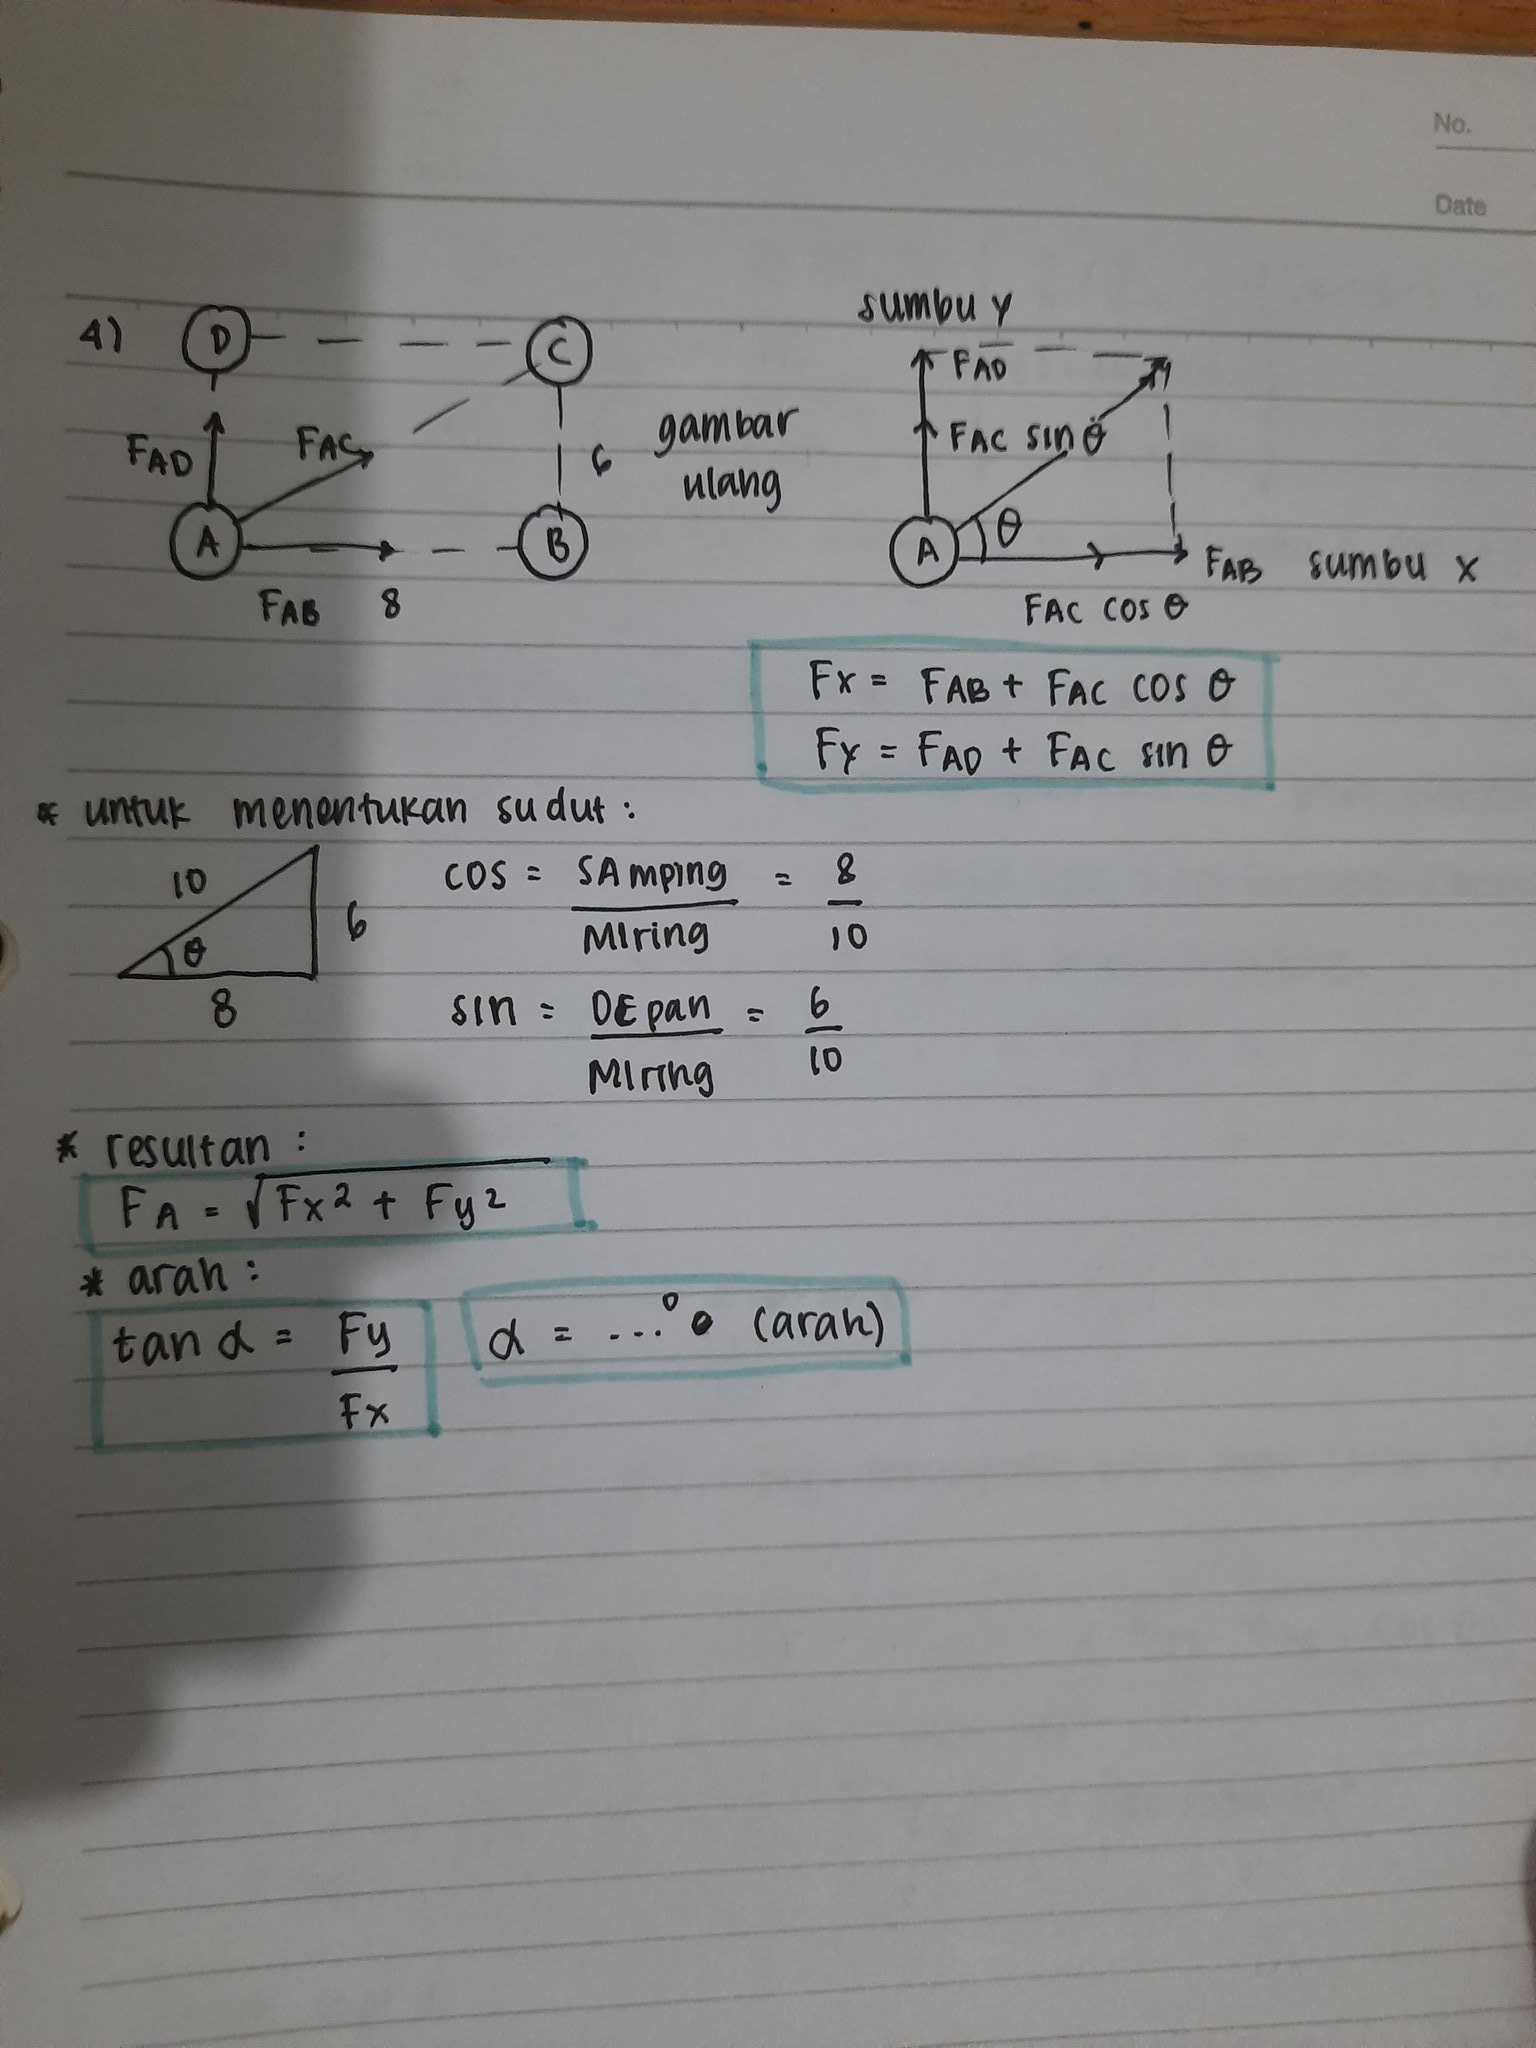 No.
Date
4)
D
C
FAD
FAC
A
B
6
FAB 8
gambar
ulang
sumbu y
FAD
FAC sin θ
A
θ
FAB sumbu x
FAC cos θ
Fx = FAB + FAC cos θ
Fy = FAD + FAC sin θ
* untuk menentukan sudut :
10
θ
6
8
cos = SAmping / MIring = 8 / 10
sin = DEpan / MIring = 6 / 10
* resultan :
FA = √Fx² + Fy²
* arah :
tan α = Fy / Fx
α = ...° (arah)